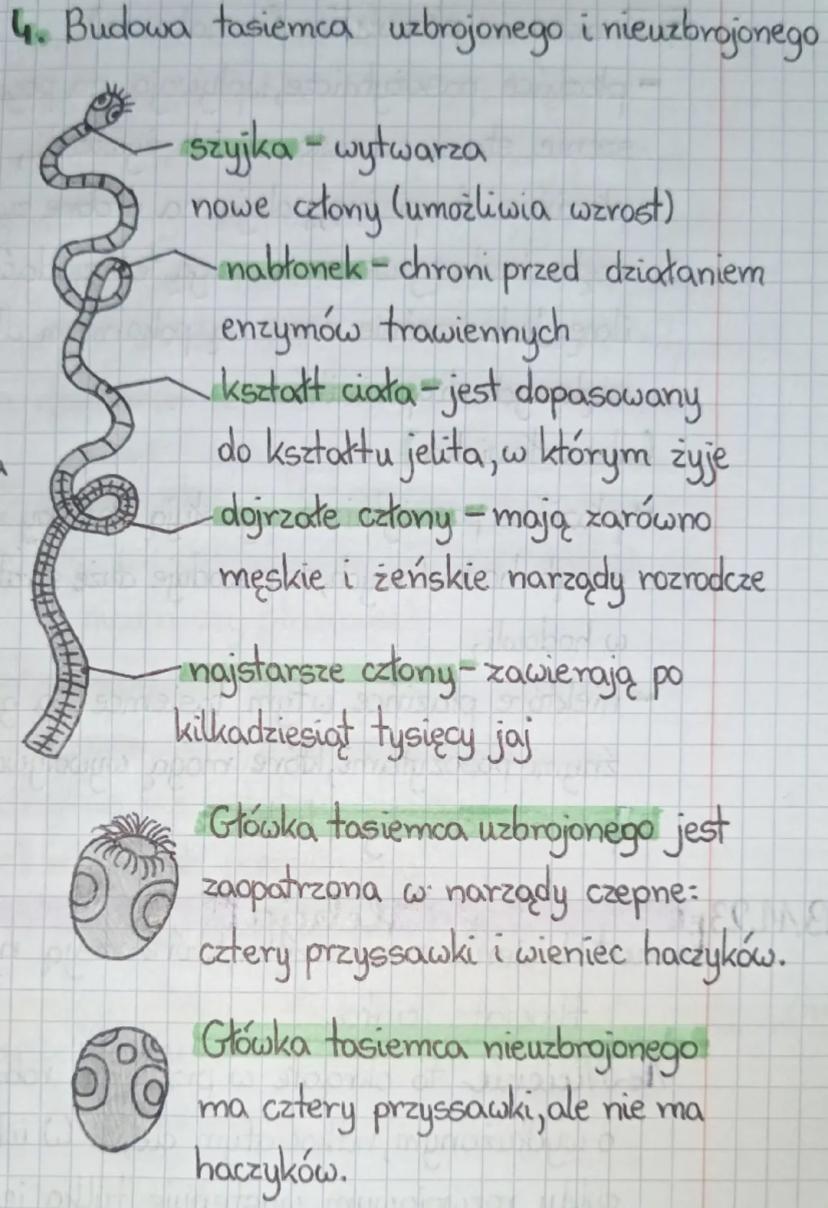 4. Budowa tasiemca uzbrojonego i nieuzbrojonego
szyjka - wytwarza
nowe człony (umożliwia wzrost)
nabłonek - chroni przed działaniem
enzymów trawiennych
kształt ciała - jest dopasowany
do kształtu jelita, w którym żyje
dojrzałe człony - mają zarówno
męskie i żeńskie narządy rozrodcze
najstarsze człony - zawierają po
kilkadziesiąt tysięcy jaj
Główka tasiemca uzbrojonego jest
zaopatrzona w narządy czepne:
cztery przyssawki i wieniec haczyków.
Główka tasiemca nieuzbrojonego
ma cztery przyssawki, ale nie ma
haczyków.